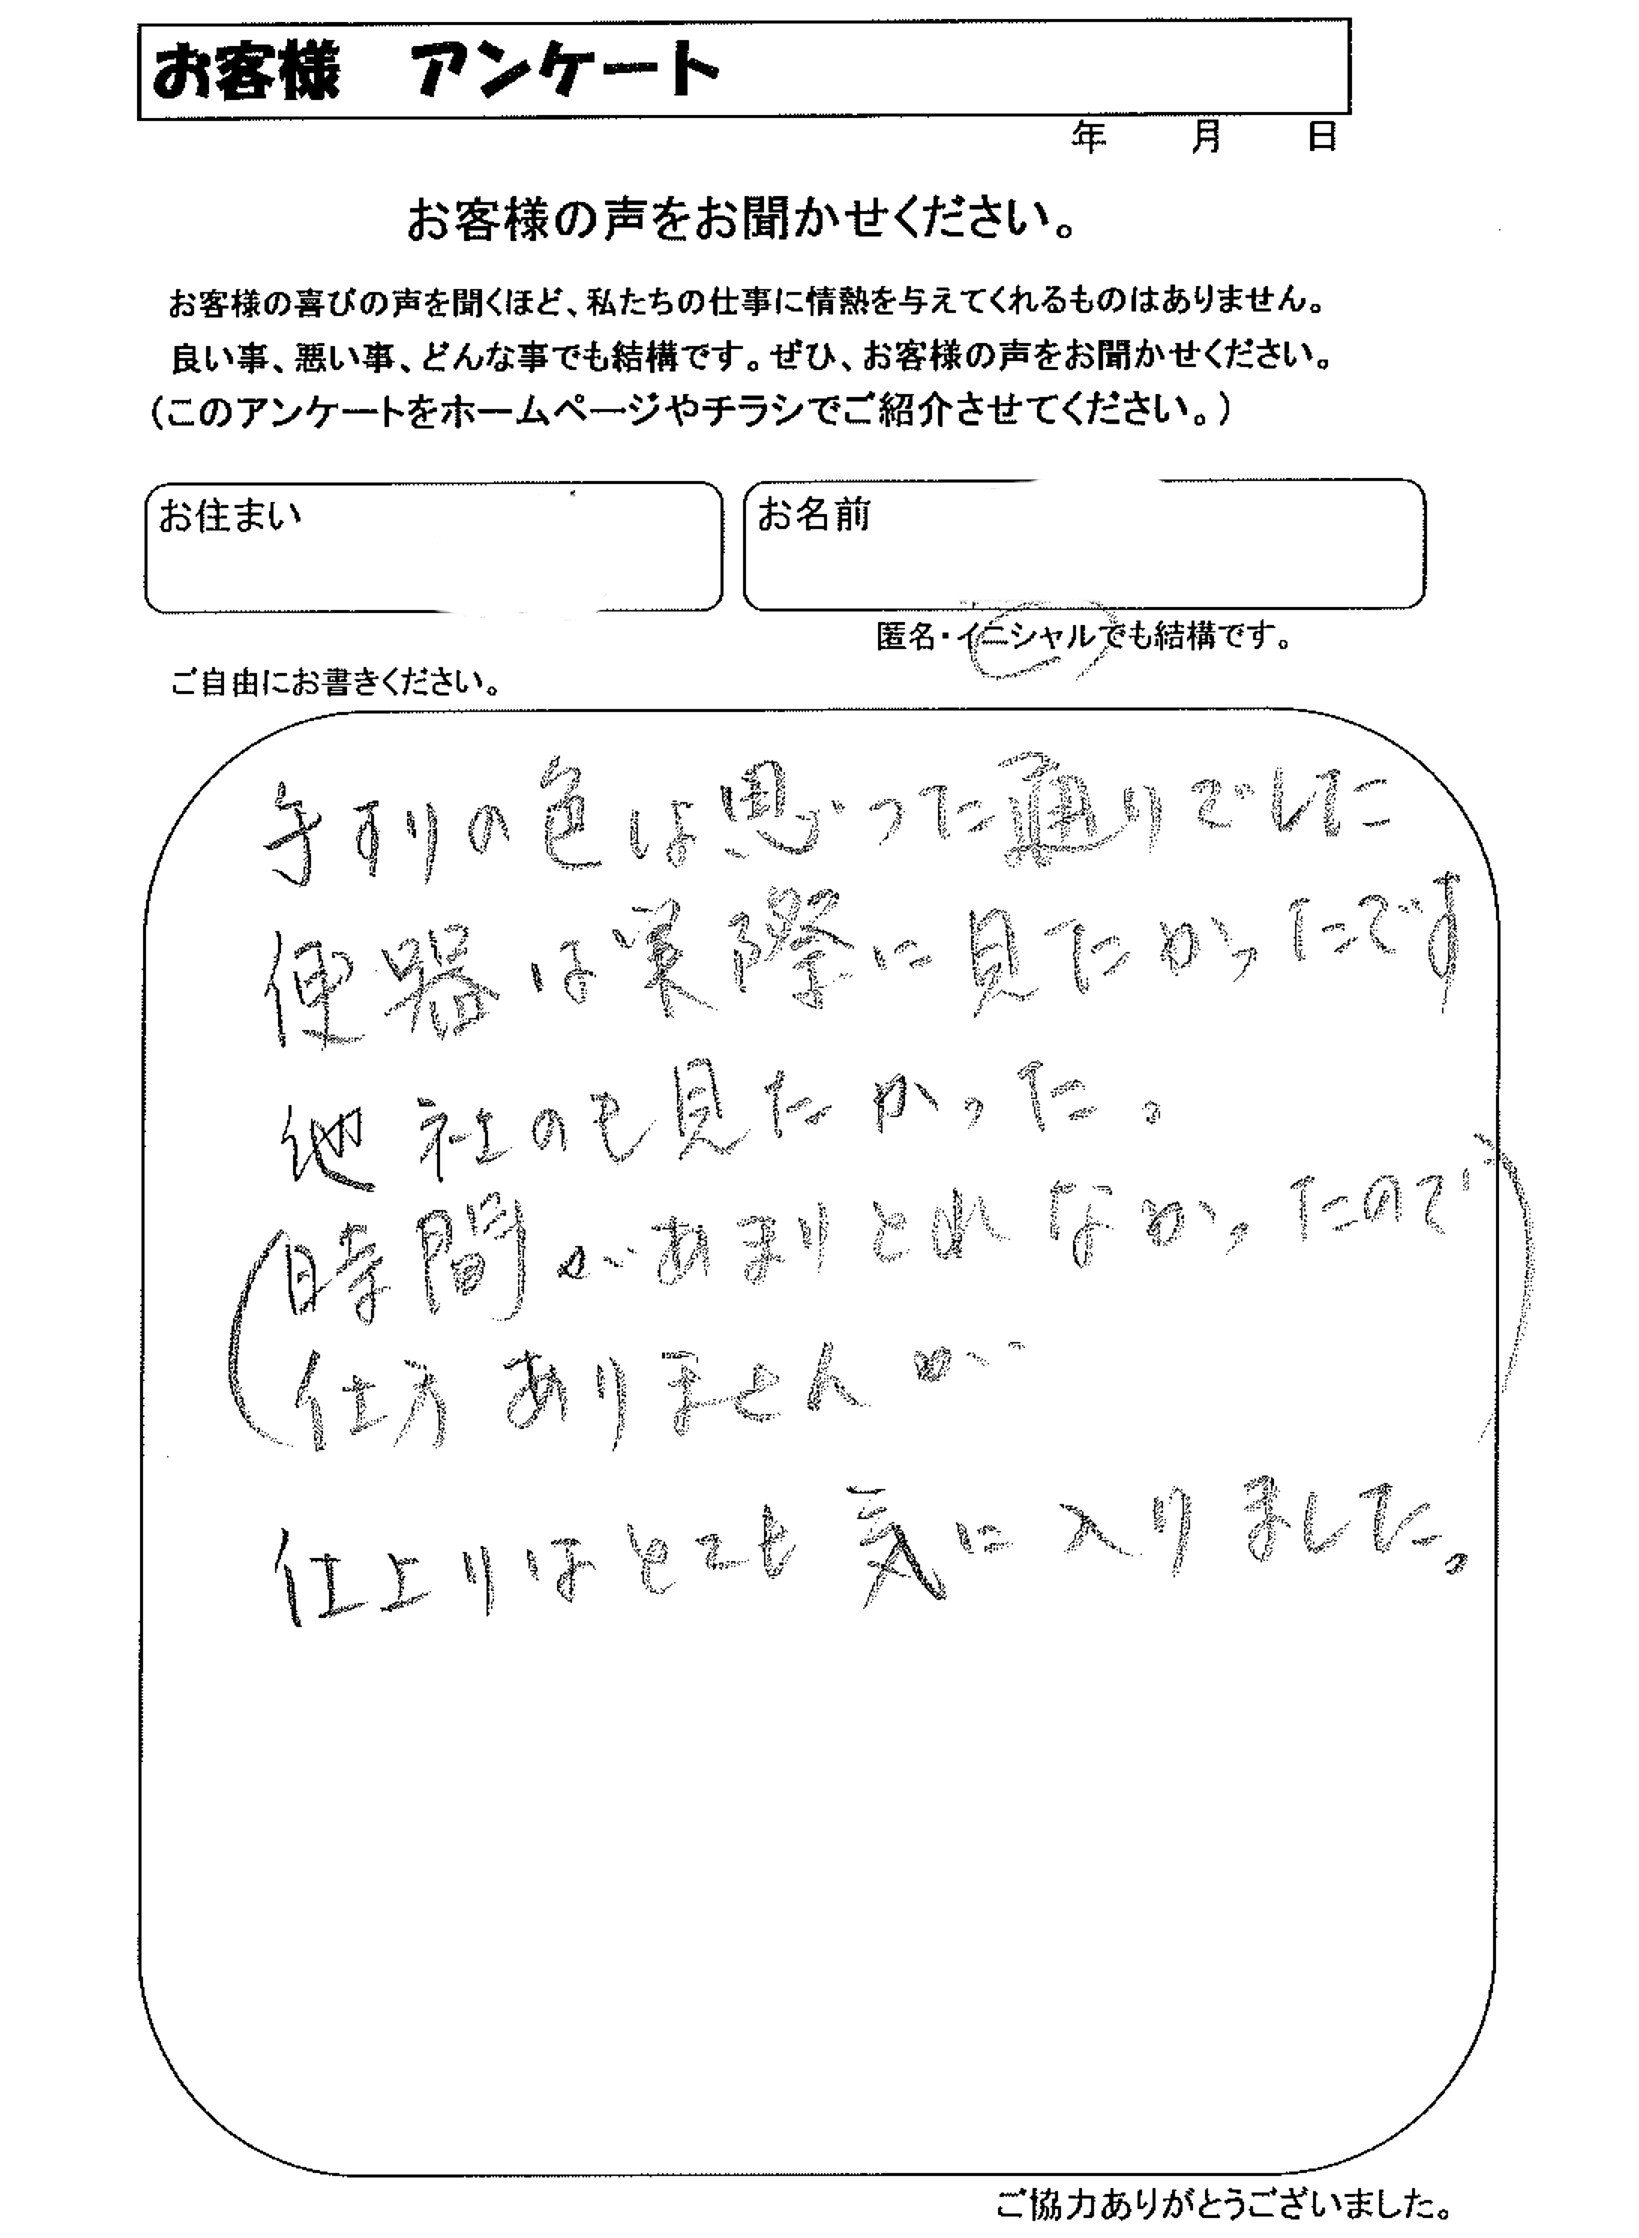 お客様　アンケート
年　月　日
お客様の声をお聞かせください。
お客様の喜びの声を聞くほど、私たちの仕事に情熱を与えてくれるものはありません。
良い事、悪い事、どんな事でも結構です。ぜひ、お客様の声をお聞かせください。
（このアンケートをホームページやチラシでご紹介させてください。）
お住まい
お名前
匿名・イニシャルでも結構です。
ご自由にお書きください。
手すりの色は思った通りでした
便器は実際に見たかったです
他社のも見たかった。
(時間があまりとれなかったので
仕方ありませんが)
仕上りはとても気に入りました。
ご協力ありがとうございました。